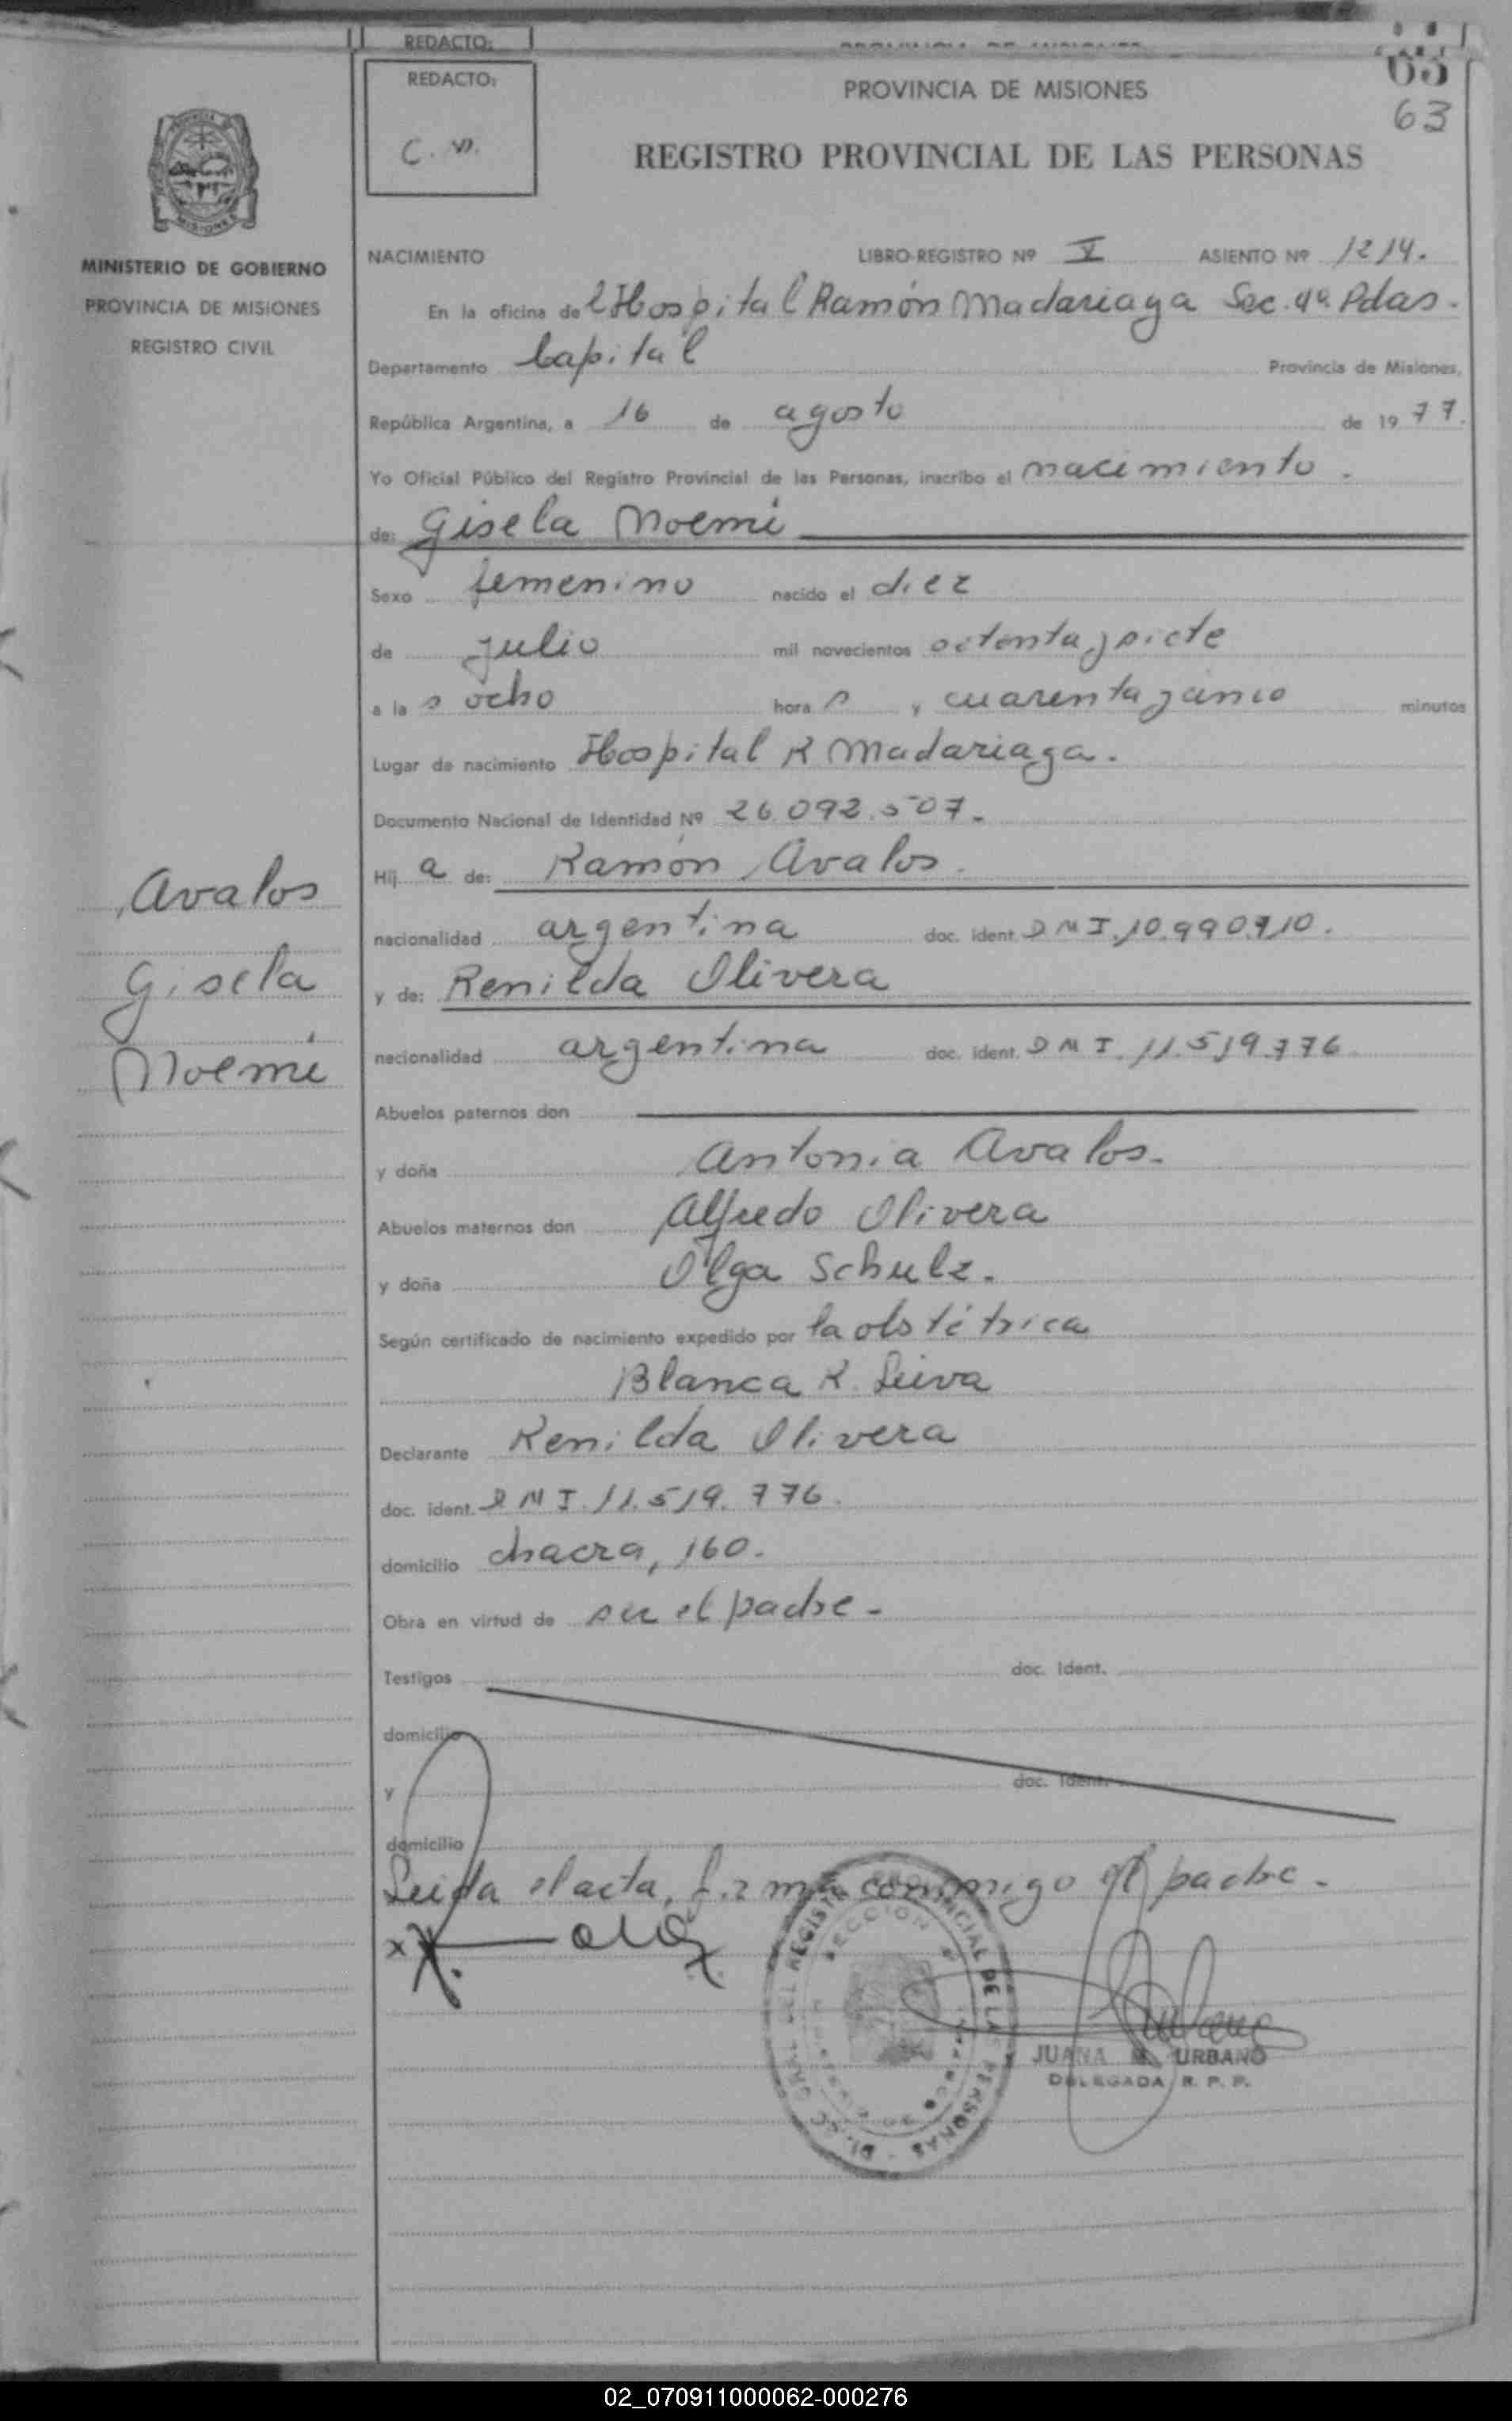 REDACTO:
REDACTO:
C. V.
PROVINCIA DE MISIONES
63
63
REGISTRO PROVINCIAL DE LAS PERSONAS
MINISTERIO DE GOBIERNO
PROVINCIA DE MISIONES
REGISTRO CIVIL
NACIMIENTO LIBRO-REGISTRO Nº V ASIENTO Nº 1214.
En la oficina del Hospital Ramón Madariaga Sec. 4a. Pdas.
Departamento Capital Provincia de Misiones,
República Argentina, a 16 de agosto de 1977.
Yo Oficial Público del Registro Provincial de las Personas, inscribo el nacimiento.
de: Gisela Noemí
Sexo femenino nacido el diez
de julio mil novecientos setenta y siete
a las ocho horas y cuarenta y cinco minutos
Lugar de nacimiento Hospital R Madariaga.
Documento Nacional de Identidad Nº 26.092.507.
Hija de: Ramón Avalos.
nacionalidad argentina doc. ident. D N I. 10.990.910.
y de: Renilda Olivera
nacionalidad argentina doc. ident. D N I. 11.519.776
Avalos
Gisela
Noemí
Abuelos paternos don
y doña Antonia Avalos.
Abuelos maternos don Alfredo Olivera
y doña Olga Schulz.
Según certificado de nacimiento expedido por la obstétrica
Blanca R. Leiva
Declarante Renilda Olivera
doc. ident. D N I. 11.519.776.
domicilio chacra, 160.
Obra en virtud de ser el padre.
Testigos doc. Ident.
domicilio
y doc. Ident.
domicilio
Leida el acta, firma conmigo el padre.
JUANA URBANO
DELEGADA R. P. P.
02_070911000062-000276